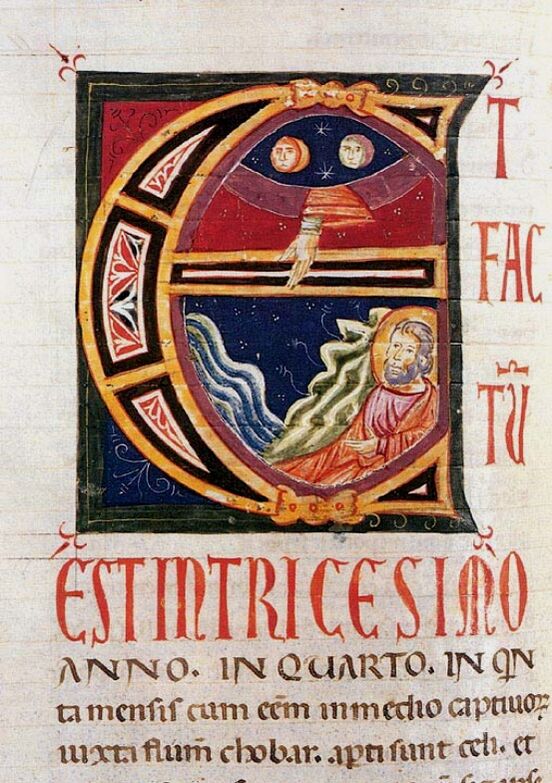 E
T
FAC
TŪ
EST IN TRICESIMO
ANNO. IN QUARTO. IN QN
ta mensis cum eēm in medio captivoꝝ
iuxta fluṁ chobar. apti sunt celi. et